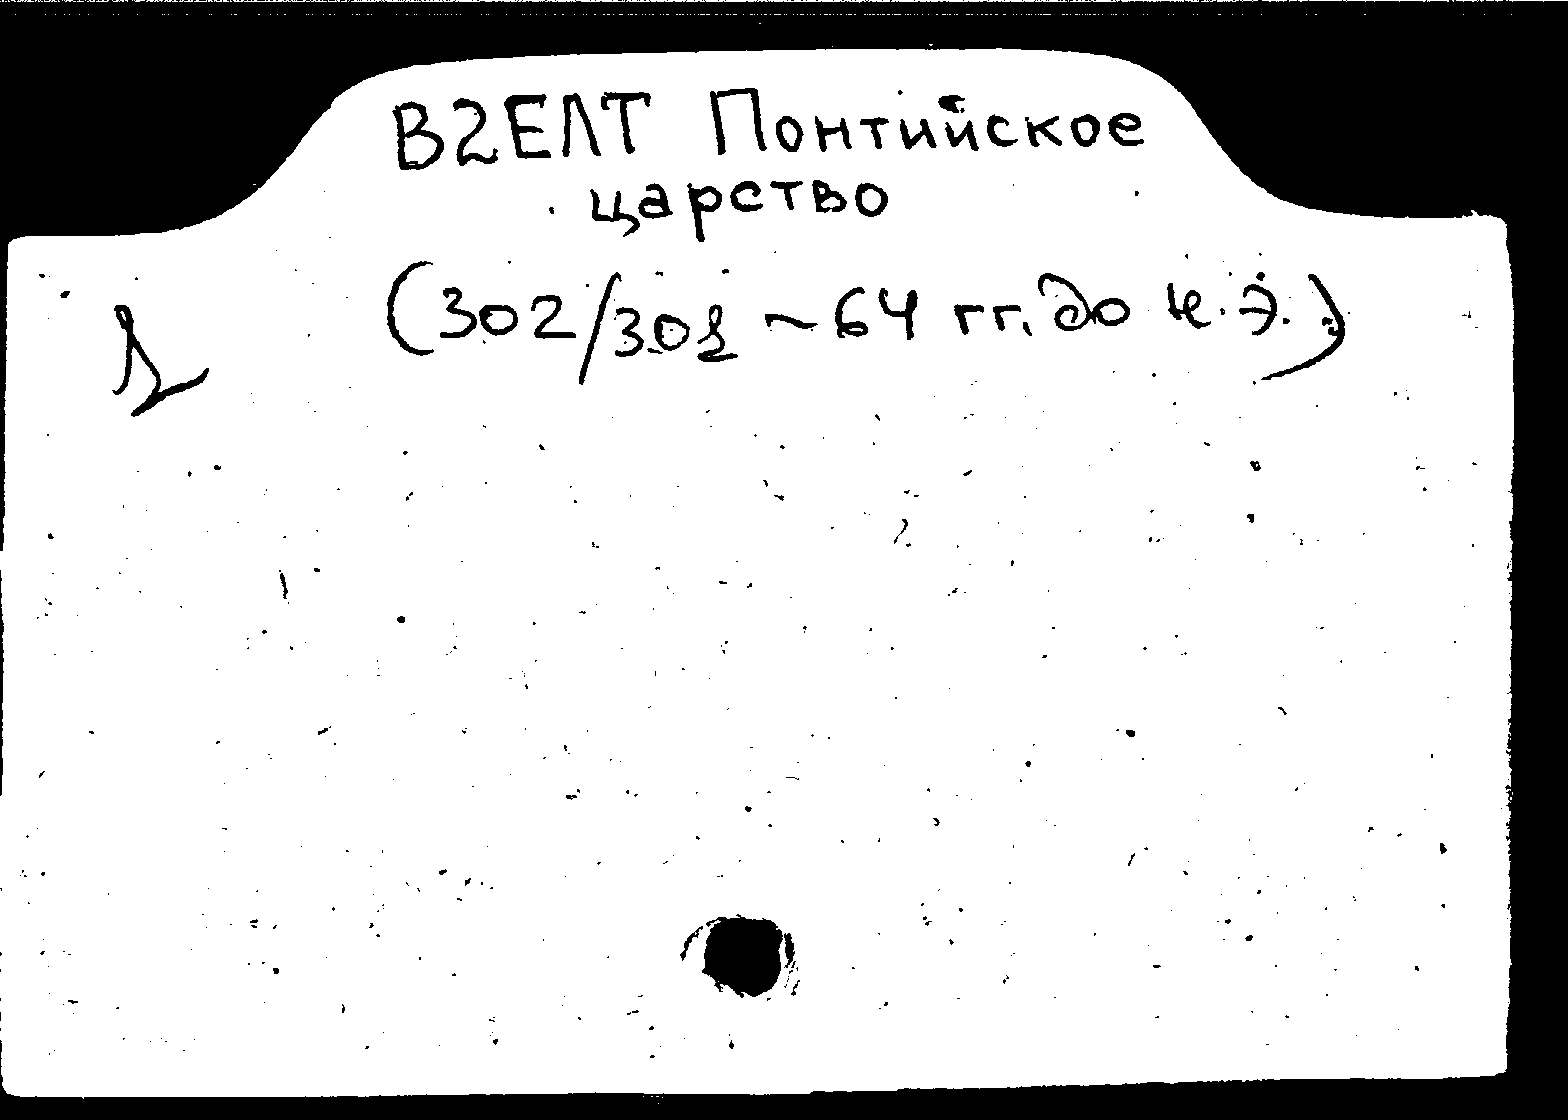 В2ЕЛТ Понтийское
царство
(302/301 ~ 64 гг. до н.э.)